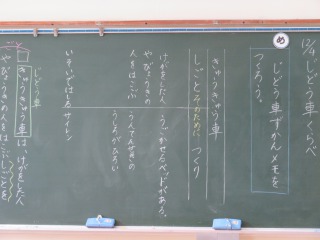 12/4 じどう車くらべ
め
じどう車ずかんメモを
つくろう。
きゅうきゅう車
しごと そのために つくり
けがをした人
やびょうきの
人をはこぶ
うごかせるベッドがある。
うんてんせきの
うしろがひろい
いそいではしる サイレン
じどう車
きゅうきゅう車は、けがをした人
やびょうきの人をはこぶしごとを